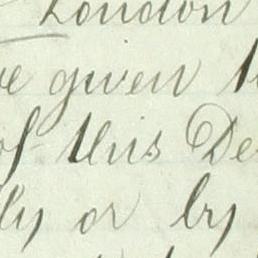 London
given
of this De
ly or by